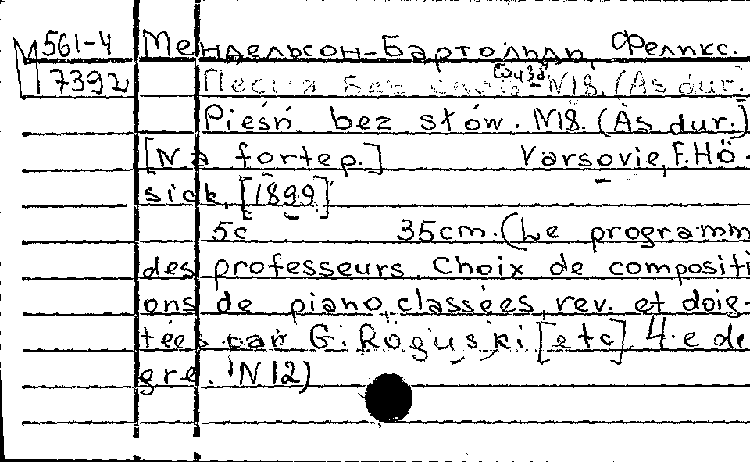 М 561-4 Мендельсон-Бартольди, Феликс.
7392 Песня без слов N18. (As dur.)
Pieśń bez słów. N18. (As dur.)
[Na fortep.] Varsovie, F. Hö-
sick, [1899]
5c 35cm. (Le programm
des professeurs. Choix de compositi
ons de piano, classées, rev. et doig-
tées par G. Roguski [etc]. 4-e de
gré. N 12)